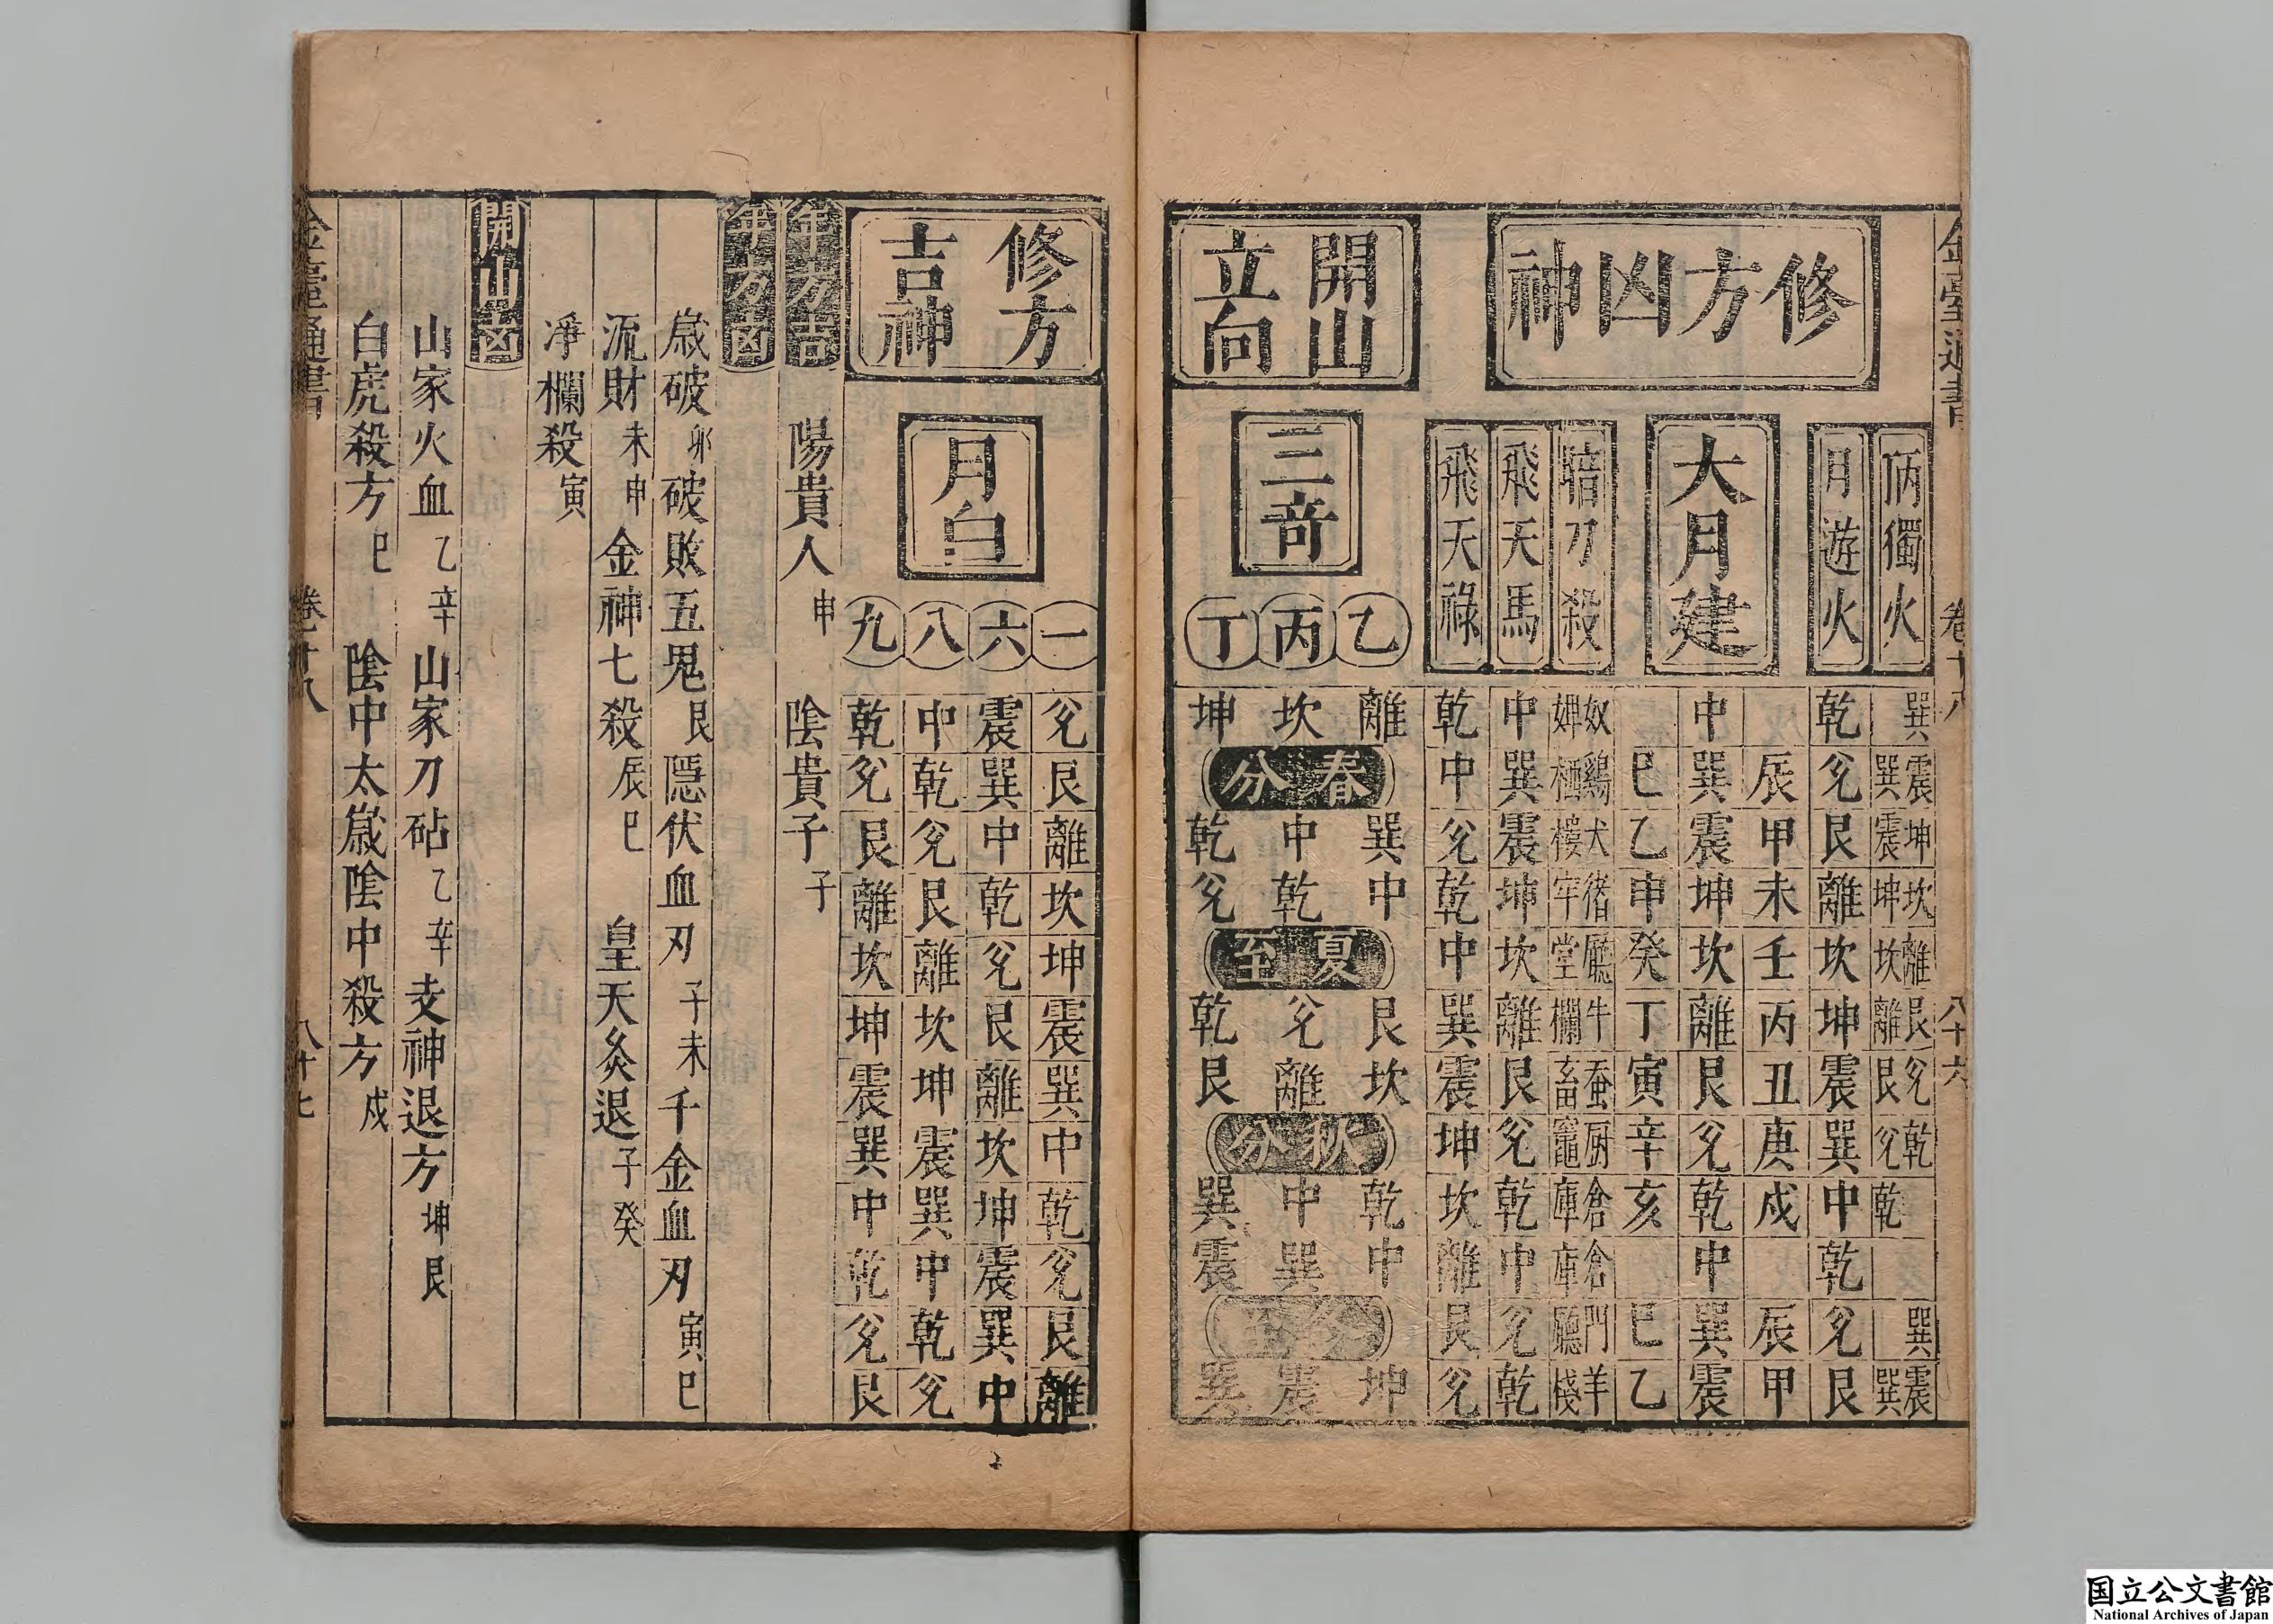 金臺通書 卷十八 八十六
修方凶神
獨火
巽震坤坎離艮兊乾巽震
巽震坤坎離艮兊乾巽
月遊火 乾兊艮離坎坤震巽中乾兊艮
大月建
辰甲未壬丙丑庚戌辰甲
中巽震坤坎離艮兊乾中巽震
巳乙申癸丁寅辛亥巳乙
暗刀殺 奴婢 鷄栖 犬樓 猪牢 廳堂 牛欄 蚕畜 厨竈 倉庫 倉庫 門廳 羊棧
飛天馬 中巽震坤坎離艮兊乾中兊乾
飛天祿 乾中兊乾中巽震坤坎離艮兊
開山立向
三竒
乙 丙 丁
離 坎 坤
春分
巽 中 乾
中 乾 兊
夏至
艮 兊 乾
坎 離 艮
秋分
乾 中 巽
中 巽 震
冬至
坤 震 巽
修方吉神
月白
一 兊艮離坎坤震巽中乾兊艮離
六 震巽中乾兊艮離坎坤震巽中
八 中乾兊艮離坎坤震巽中乾兊
九 乾兊艮離坎坤震巽中乾兊艮
年方吉 陽貴人申 陰貴子子
年方凶
歲破夘 破敗五鬼艮 隱伏血刃子未 千金血刃寅巳
流財未申 金神七殺辰巳 皇天灸退子癸
淨欄殺寅
開山凶
山家火血乙辛 山家刀砧乙辛 支神退方坤艮
白虎殺方巳 陰中太歲陰中殺方戍
金臺通書 卷十八 八十七
国立公文書館
National Archives of Japan